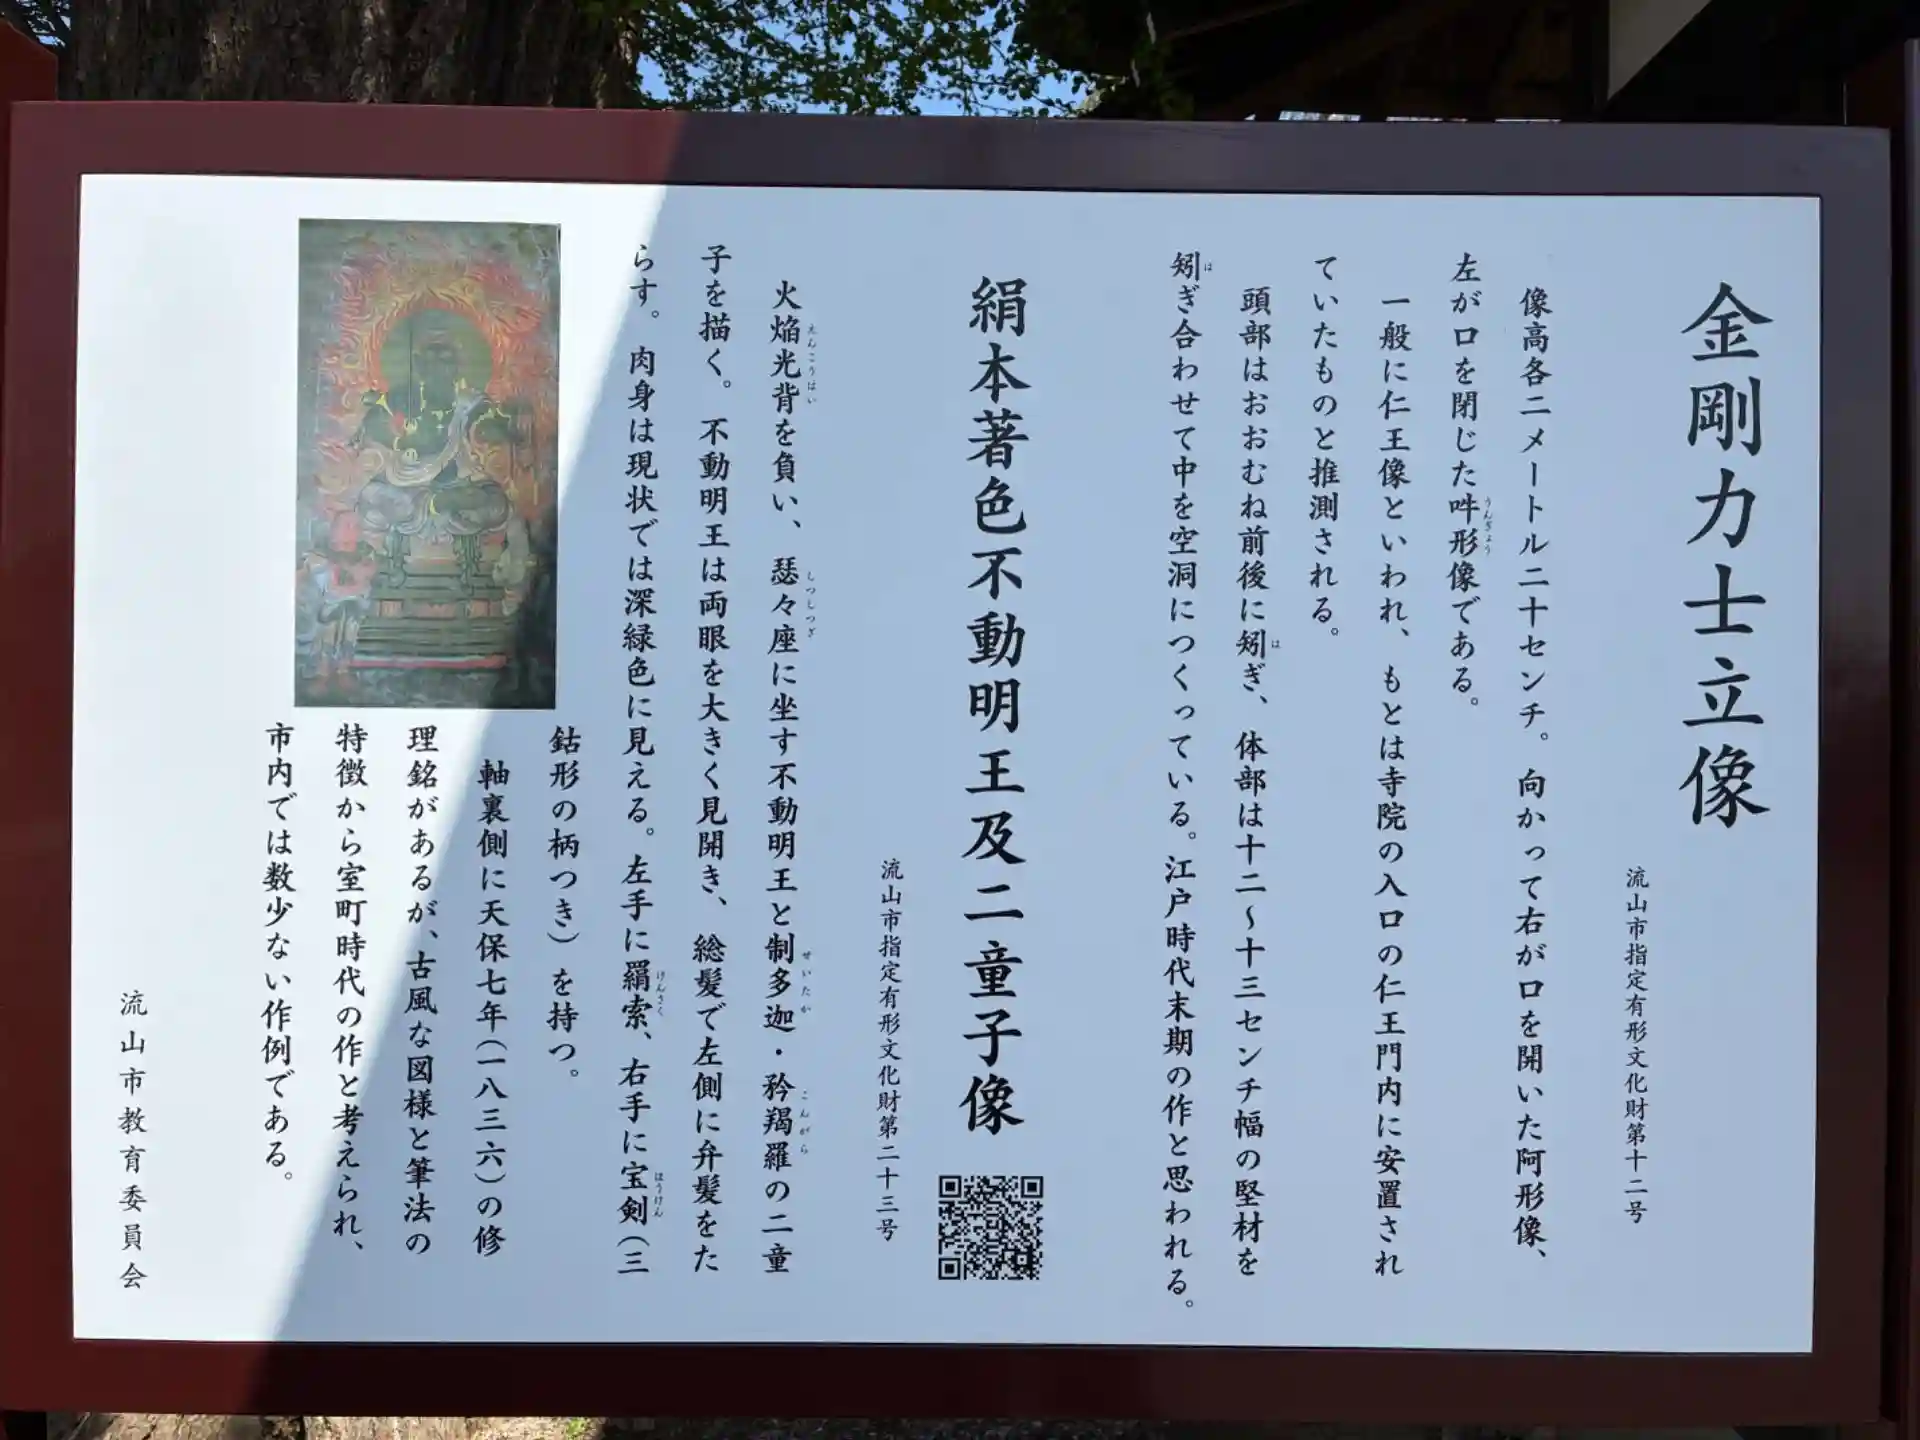 金剛力士立像
流山市指定有形文化財第十二号
像高各二メートル二十センチ。向かって右が口を開いた阿形像、
左が口を閉じた吽形像である。
一般に仁王像といわれ、もとは寺院の入口の仁王門内に安置され
ていたものと推測される。
頭部はおおむね前後に矧ぎ、体部は十二〜十三センチ幅の堅材を
矧ぎ合わせて中を空洞につくっている。江戸時代末期の作と思われる。
絹本著色不動明王及二童子像
流山市指定有形文化財第二十三号
火焔光背を負い、瑟々座に坐す不動明王と制多迦・矜羯羅の二童
子を描く。不動明王は両眼を大きく見開き、総髪で左側に弁髪をた
らす。肉身は現状では深緑色に見える。左手に羂索、右手に宝剣（三
鈷形の柄つき）を持つ。
軸裏側に天保七年（一八三六）の修
理銘があるが、古風な図様と筆法の
特徴から室町時代の作と考えられ、
市内では数少ない作例である。
流山市教育委員会